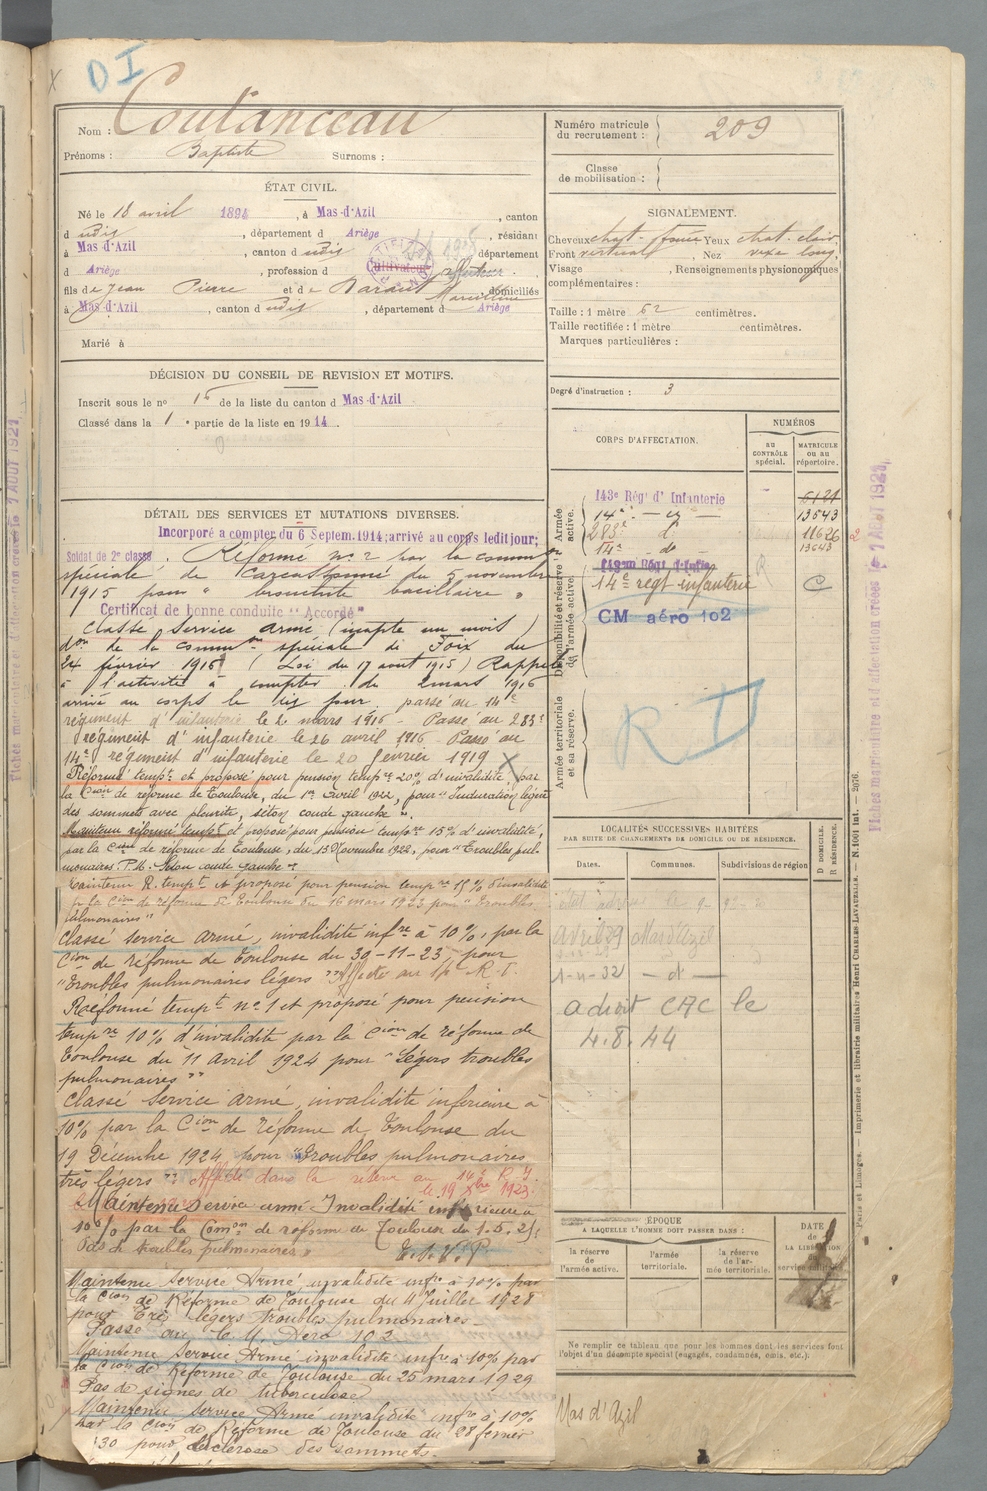 DI
Nom : Coutanceau
Prénoms : Baptiste Surnoms :
ÉTAT CIVIL.
Né le 18 avril 1894, à Mas-d'Azil, canton
d udis, département d Ariège, résidant
à Mas-d'Azil, canton d udis, département
d Ariège, profession d Cultivateur
fils de Jean Pierre et de Baraut Marcelline, domiciliés
à Mas-d'Azil, canton d udis, département d Ariège
Marié à
DÉCISION DU CONSEIL DE REVISION ET MOTIFS.
Inscrit sous le no 16 de la liste du canton d Mas-d'Azil
Classé dans la 1e partie de la liste en 1914.
DÉTAIL DES SERVICES ET MUTATIONS DIVERSES.
Incorporé a compter du 6 Septem. 1914; arrivé au corps ledit jour;
Soldat de 2e classe. Réformé no 2 par la common
spéciale de Carcassonne du 5 novembre
1915 pour " bronchite bacillaire "
Certificat de bonne conduite "Accordé"
Classé Service armé (inapte un mois)
don de la common spéciale de Foix du
24 février 1916 (Loi du 17 août 1915) Rappelé
à l'activité à compter du 2 mars 1916
arrivé au corps le dix jour, passé au 14e
régiment d'infanterie le 2 mars 1916 - Passé au 283e
régiment d'infanterie le 26 avril 1916 - Passé au
14e régiment d'infanterie le 20 février 1919
Réformé tempre et proposé pour pension tempre 20% d'invalidité, par
la Cion de réforme de Toulouse, du 1er avril 1922, pour "Induration légère
des sommets avec pleurite, séton coude gauche".
Maintenu réformé tempt et proposé pour pension tempre 15% d'invalidité,
par la Cion de réforme de Toulouse, du 13 Novembre 1922, pour "Troubles pul-
monaires. P.M. Séton coude gauche"
Maintenu R. tempt et proposé pour pension tempre 15% d'invalidité
p la Cion de réforme de Toulouse du 16 mars 1923 pour "Troubles
pulmonaires"
Classé Service Armé, invalidité infre à 10%, par la
Cion de réforme de Toulouse du 30-11-23, pour
"Troubles pulmonaires légers" Affecté au 14e R.I.
Réformé tempt no 1 et proposé pour pension
tempre 10% d'invalidité par la Cion de réforme de
Toulouse du 11 Avril 1924 pour "Légers troubles
pulmonaires"
Classé Service Armé, invalidité inférieure à
10% par la Cion de réforme de Toulouse du
19 Décembre 1924 pour "Troubles pulmonaires
très légers". Affecté dans la réserve au 14e R.I.
le 19 Xbre 1923.
Maintenu Service armé Invalidité inférieure à
10% par la Comon de réforme de Toulouse du 1.5.25
Pas de troubles pulmonaires"
T.S.V.P.
Maintenu Service Armé invalidité infre à 10% par
la Cion de Réforme de Toulouse du 4 Juillet 1928
pour "Très légers troubles pulmonaires -
Passé au C.M. Aéro 102
Maintenu Service Armé invalidité infre à 10% par
la Cion de Réforme de Toulouse du 25 mars 1929
Pas de signes de tuberculose
Maintenu Service Armé invalidité infre à 10%
par la Cion de Réforme de Toulouse du 28 février
1930 pour sclérose des sommets.
Numéro matricule du recrutement : 209
Classe de mobilisation :
SIGNALEMENT.
Cheveux chat. foncé Yeux chat. clair
Front vertical, Nez vexe long
Visage, Renseignements physionomiques
complémentaires :
Taille : 1 mètre 62 centimètres.
Taille rectifiée : 1 mètre centimètres.
Marques particulières :
Degré d'instruction : 3
CORPS D'AFFECTATION.
NUMÉROS
au CONTRÔLE spécial.
MATRICULE ou au répertoire.
Armée active.
143e Rég. d'Infanterie 6121
14e - do - 13543
283e do 11626
14e - do - 13643
Disponibilité et réserve de l'armée active.
14e régt infanterie C
CM aéro 102
RI
Armée territoriale et sa réserve.
LOCALITÉS SUCCESSIVES HABITÉES
PAR SUITE DE CHANGEMENTS DE DOMICILE OU DE RÉSIDENCE.
D DOMICILE.
R RÉSIDENCE.
Dates. Communes. Subdivisions de région
avril 29 Mas d'Azil
1-11-32 - d -
admit CAC le
4.8.44
ÉPOQUE
A LAQUELLE L'HOMME DOIT PASSER DANS :
la réserve de l'armée active.
l'armée territoriale.
la réserve de l'armée territoriale.
DATE
de
LA LIBÉRATION
du
service militaire
Ne remplir ce tableau que pour les hommes dont les services font
l'objet d'un décompte spécial (engagés, condamnés, omis, etc.).
Mas d'Azil
Paris et Limoges. — Imprimerie et librairie militaires Henri CHARLES-LAVAUZELLE. — N. 1001 int. — 2976.
Fiches matriculaire et d'affectation créées le 7 AOUT 1921